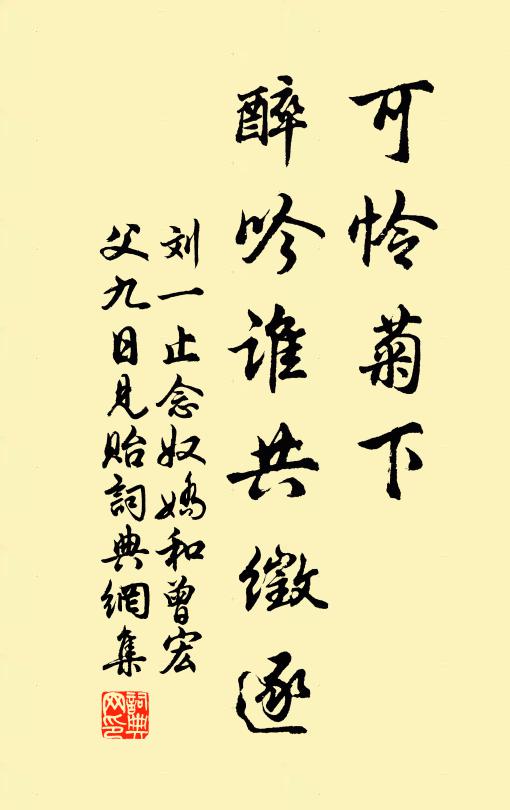 可怜菊下
醉吟谁共徵逐
刘一止念奴娇和曾宏
父九日见贻詞典網集
詞典网印